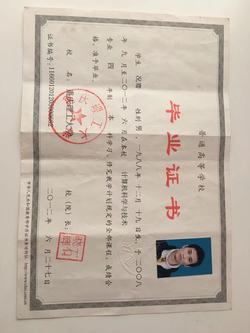 普通高等学校
毕业证书
学生 性别 男，一九八八年十二月十九日生，于二〇〇八
年九月至二〇一二年六月在本校 计算机科学与技术
专业 四年制 本科学习，修完教学计划规定的全部课程，成绩合
格，准予毕业。
校（院）长：
证书编号： 二〇一二年六月二十七日